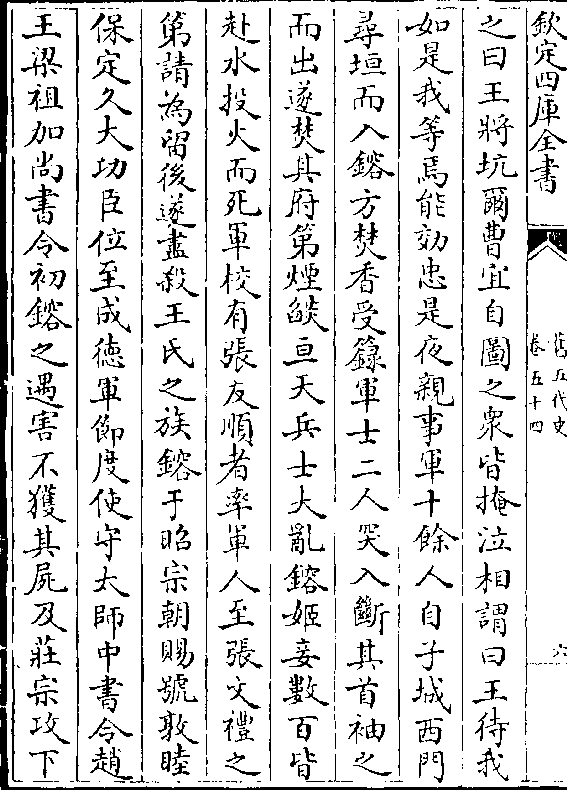 欽定四庫全書
舊五代史
卷五十四
六
之曰王將坑爾曹宜自圖之衆皆掩泣相謂曰王待我
如是我等焉能効忠是夜親事軍十餘人自子城西門
尋垣而入鎔方焚香受籙軍士二人突入斷其首袖之
而出遂焚其府第煙燄亘天兵士大亂鎔姬妾數百皆
赴水投火而死軍校有張友順者率軍人至張文禮之
第請為留後遂盡殺王氏之族鎔于昭宗朝賜號敦睦
保定久大功臣位至成徳軍節度使守太師中書令趙
王梁祖加尚書令初鎔之遇害不獲其屍及莊宗攻下